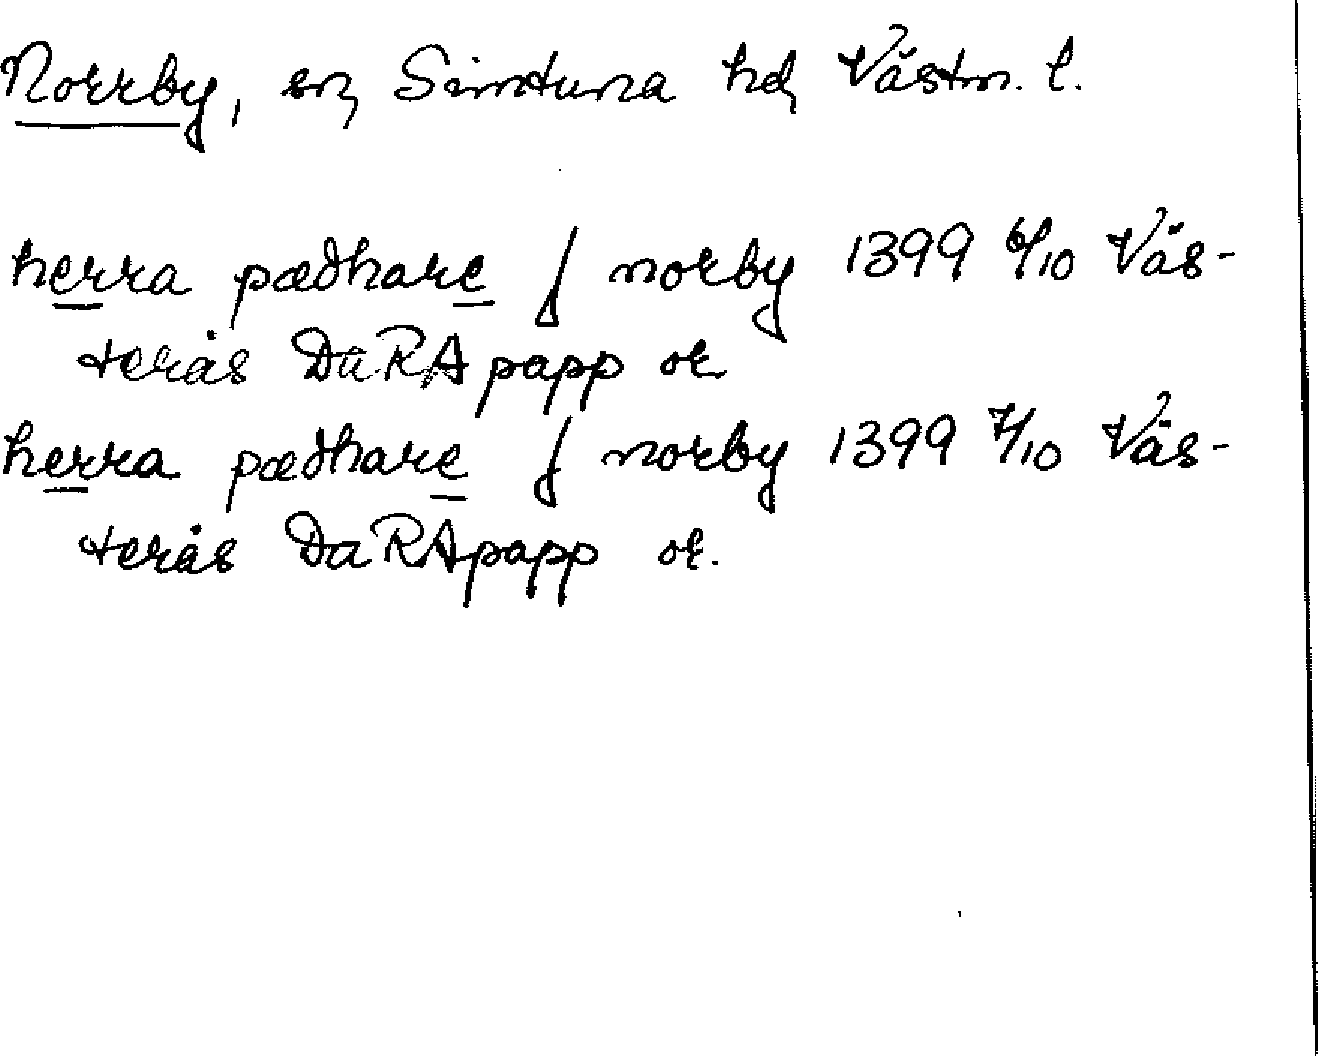 Norrby, sn, Simtuna hd, Västm. l.
herra pædhare j norby 1399 6/10 Väs-
terås DaRApapp or.
herra pædhare j norby 1399 7/10 Väs-
terås DaRApapp or.